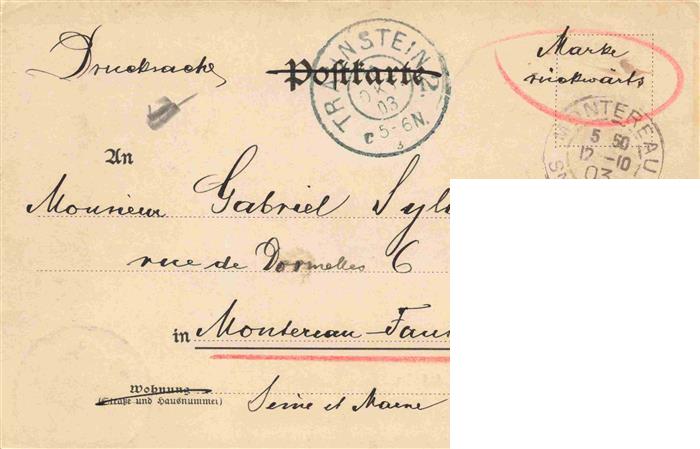 Drucksache
Postkarte
TRAUNSTEIN 2.
OKT.
03
5-6N.
Marke
rückwärts
MONTEREAU
5 50
12 -10
03
An
Monsieur Gabriel Sylv
rue de Dormelles 6
in Montereau-Faut
Wohnung
(Straße und Hausnummer)
Seine et Marne